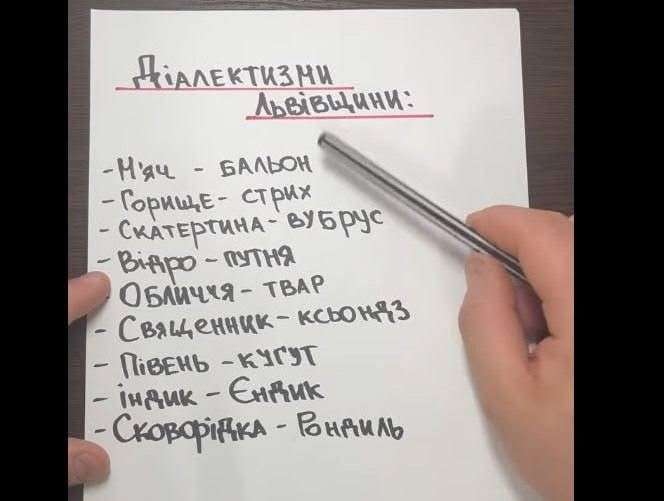 Діалектизми
Львівщини:
- М'яч - бальон
- Горище - стрих
- Скатертина - вубрус
- Відро - путня
- Обличчя - твар
- Священник - ксьондз
- Півень - кугут
- індик - Єндик
- Сковорідка - Рондиль